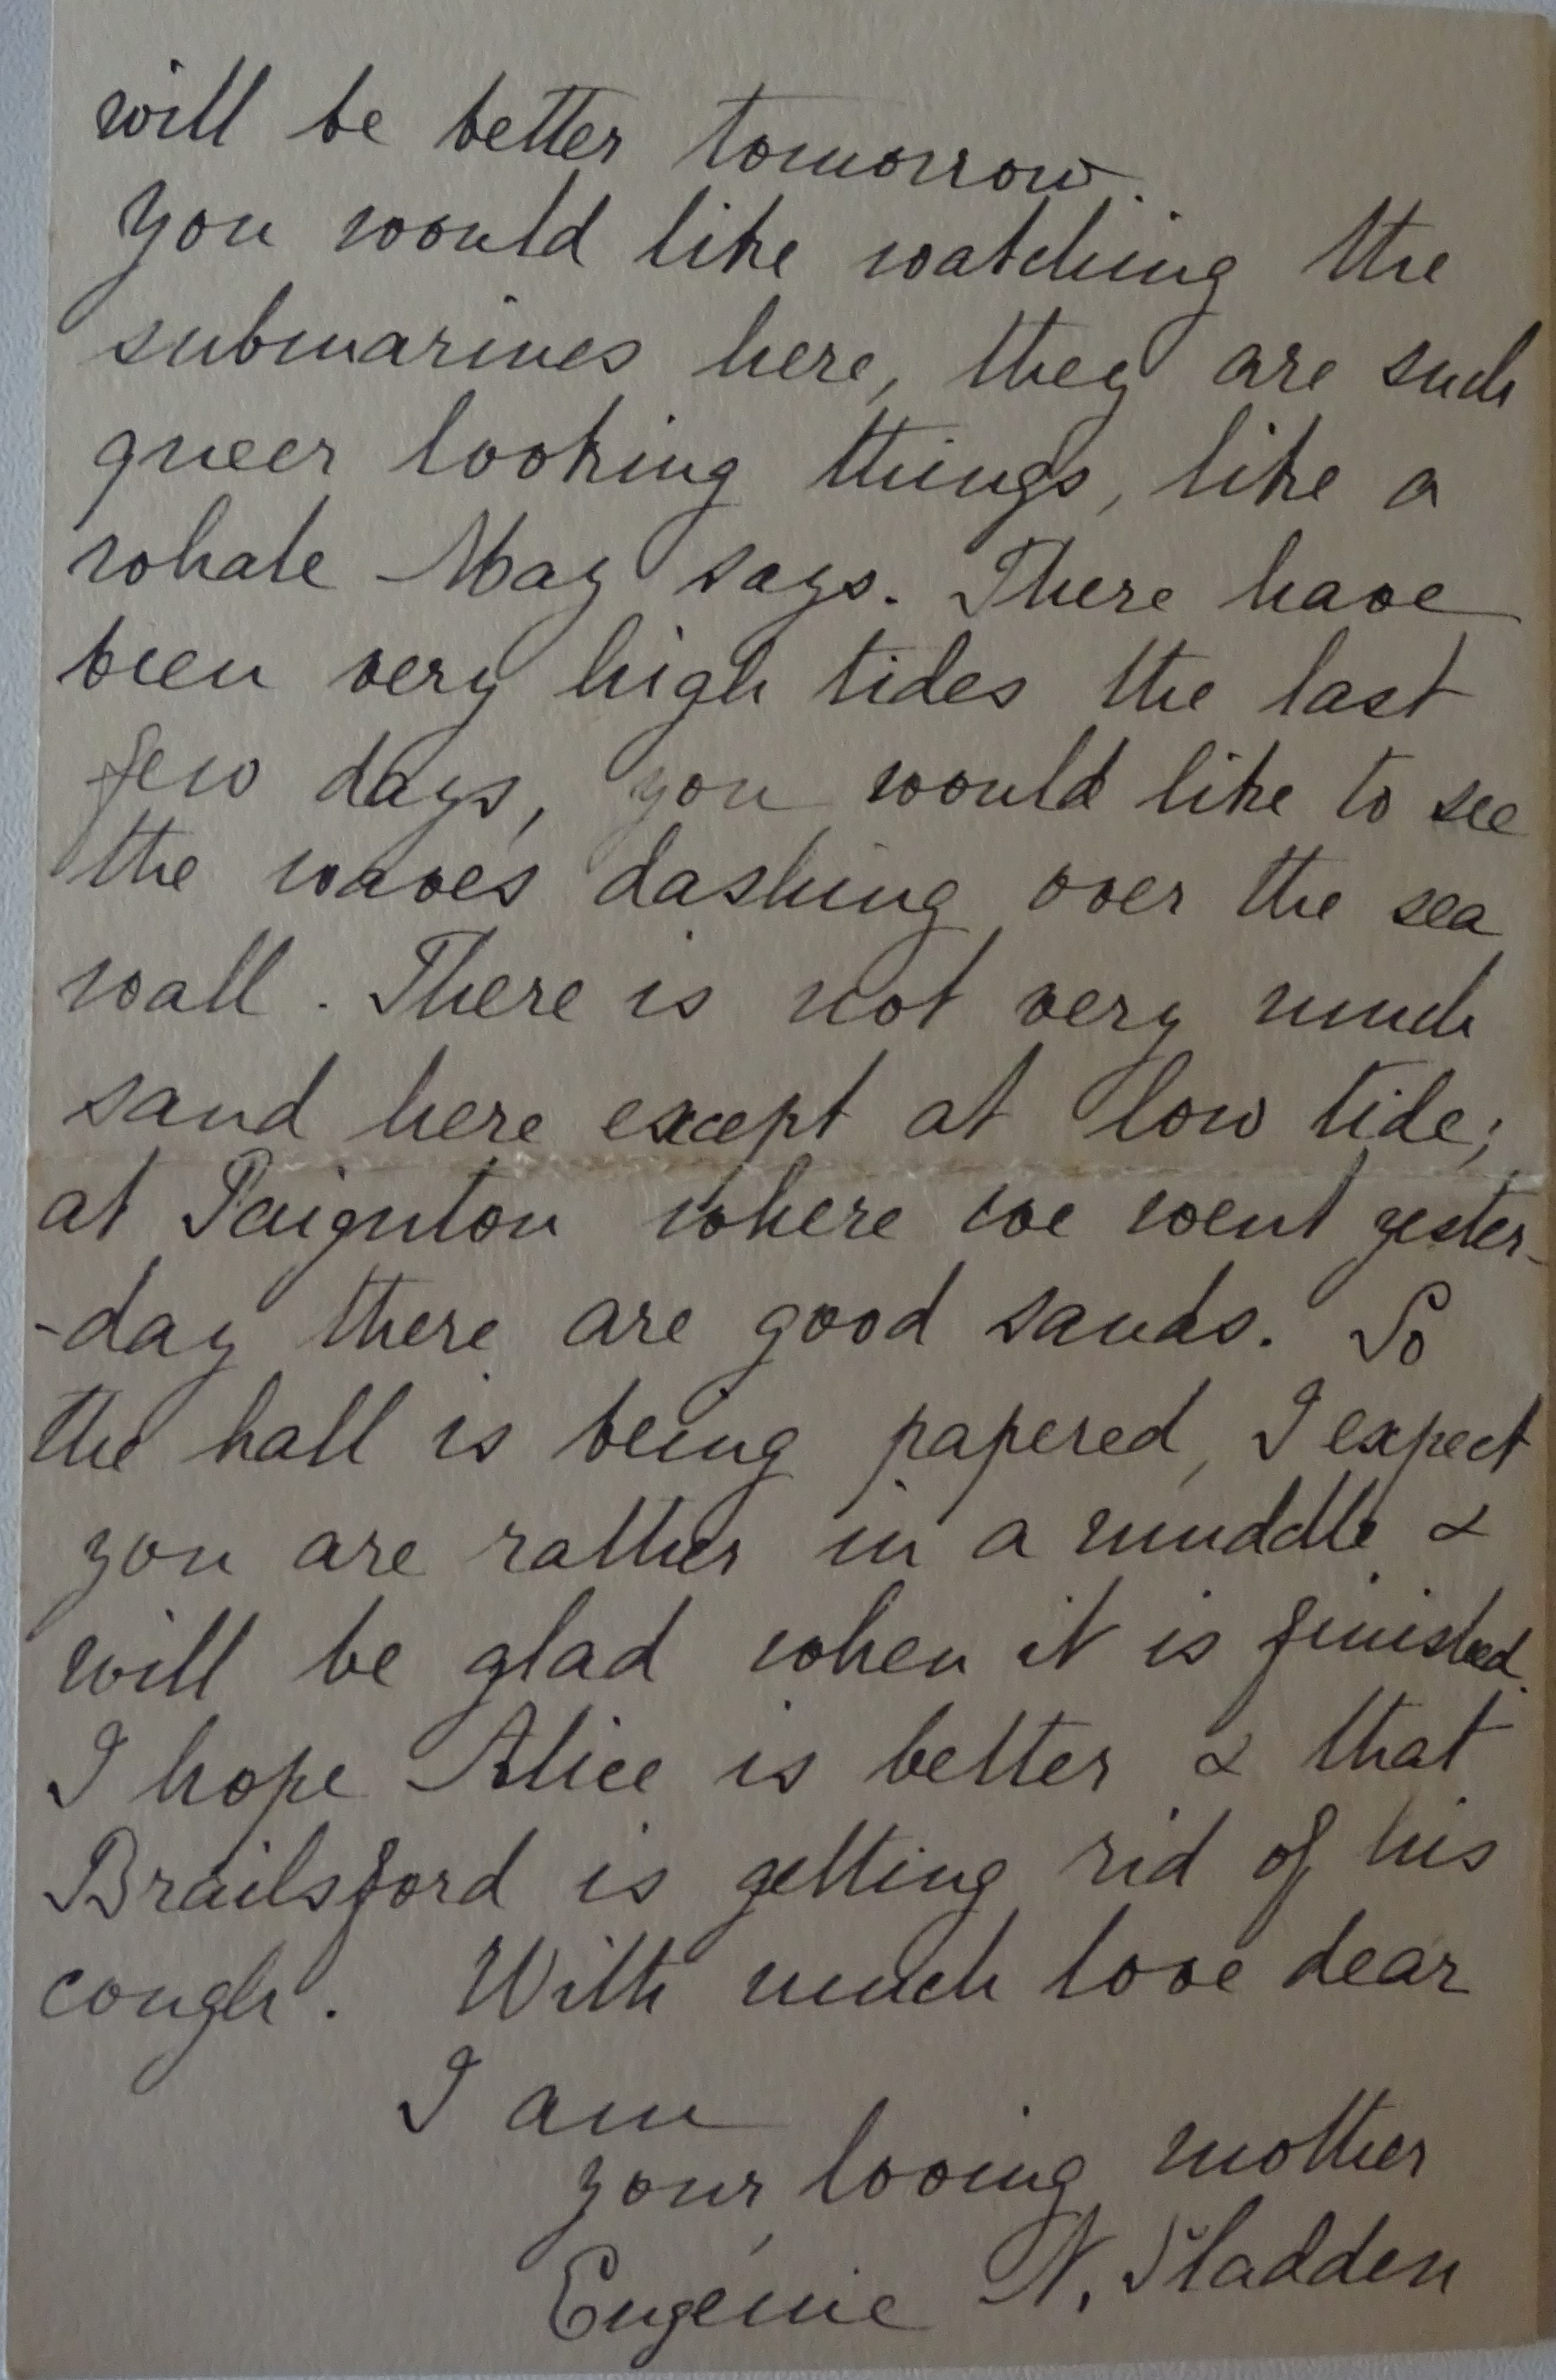 will be better tomorrow.
You would like watching the
submarines here, they are such
queer looking things, like a
whale May says. There have
been very high tides the last
few days, you would like to see
the waves dashing over the sea
wall. There is not very much
sand here except at low tide;
at Paignton where we went yester-
-day there are good sands. So
the hall is being papered, I expect
you are rather in a muddle &
will be glad when it is finished.
I hope Alice is better & that
Brailsford is getting rid of his
cough. With much love dear
I am
your loving mother
Eugénie N. Sladden